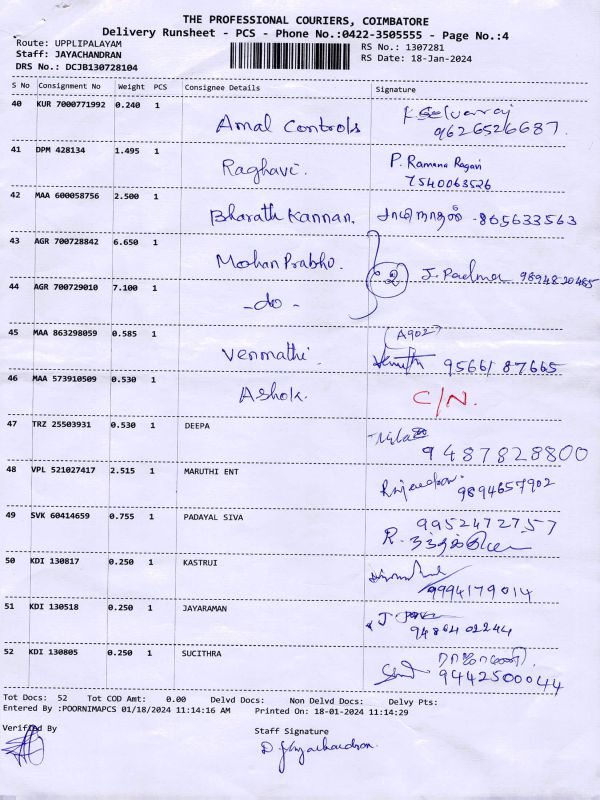 THE PROFESSIONAL COURIERS, COIMBATORE
Delivery Runsheet - PCS - Phone No.:0422-3505555 - Page No.:4
Route: UPPLIPALAYAM
RS No.: 1307281
Staff: JAYACHANDRAN
RS Date: 18-Jan-2024
DRS No.: DCJB130728104
S No Consignment No Weight PCS Consignee Details Signature
40 KUR 7000771992 0.240 1 Amal Controls
9626526687.
41 DPM 428134 1.495 1 Raghavi. P. Ramana Ragavi
7540063526
42 MAA 600058756 2.500 1 Bharath Kannan. சாமிநாதன் - 865633563
43 AGR 700728842 6.650 1 Mohan Prabhu.
2 J. Padma 9894820465
44 AGR 700729010 7.100 1 - do -
45 MAA 863298059 0.585 1 Venmathi. (A902)
95661 87665
46 MAA 573910509 0.530 1 Ashok. C/N.
47 TRZ 25503931 0.530 1 DEEPA
9487828800
48 VPL 521027417 2.515 1 MARUTHI ENT Rajendran
9894657902
49 SVK 60414659 0.755 1 PADAYAL SIVA 9952472757
R.
50 KDI 130817 0.250 1 KASTRUI
9994179014
51 KDI 130518 0.250 1 JAYARAMAN
9486402244
52 KDI 130805 0.250 1 SUCITHRA
9442500044
Tot Docs: 52 Tot COD Amt: 0.00 Delvd Docs: Non Delvd Docs: Delvy Pts:
Entered By :POORNIMAPCS 01/18/2024 11:14:16 AM Printed On: 18-01-2024 11:14:29
Verified By
Staff Signature
D Jayachandran.